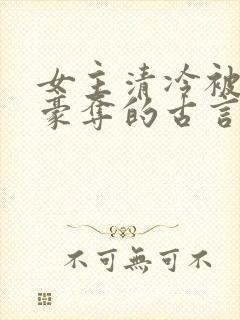 女主清冷被
豪夺的古言
不可無可不